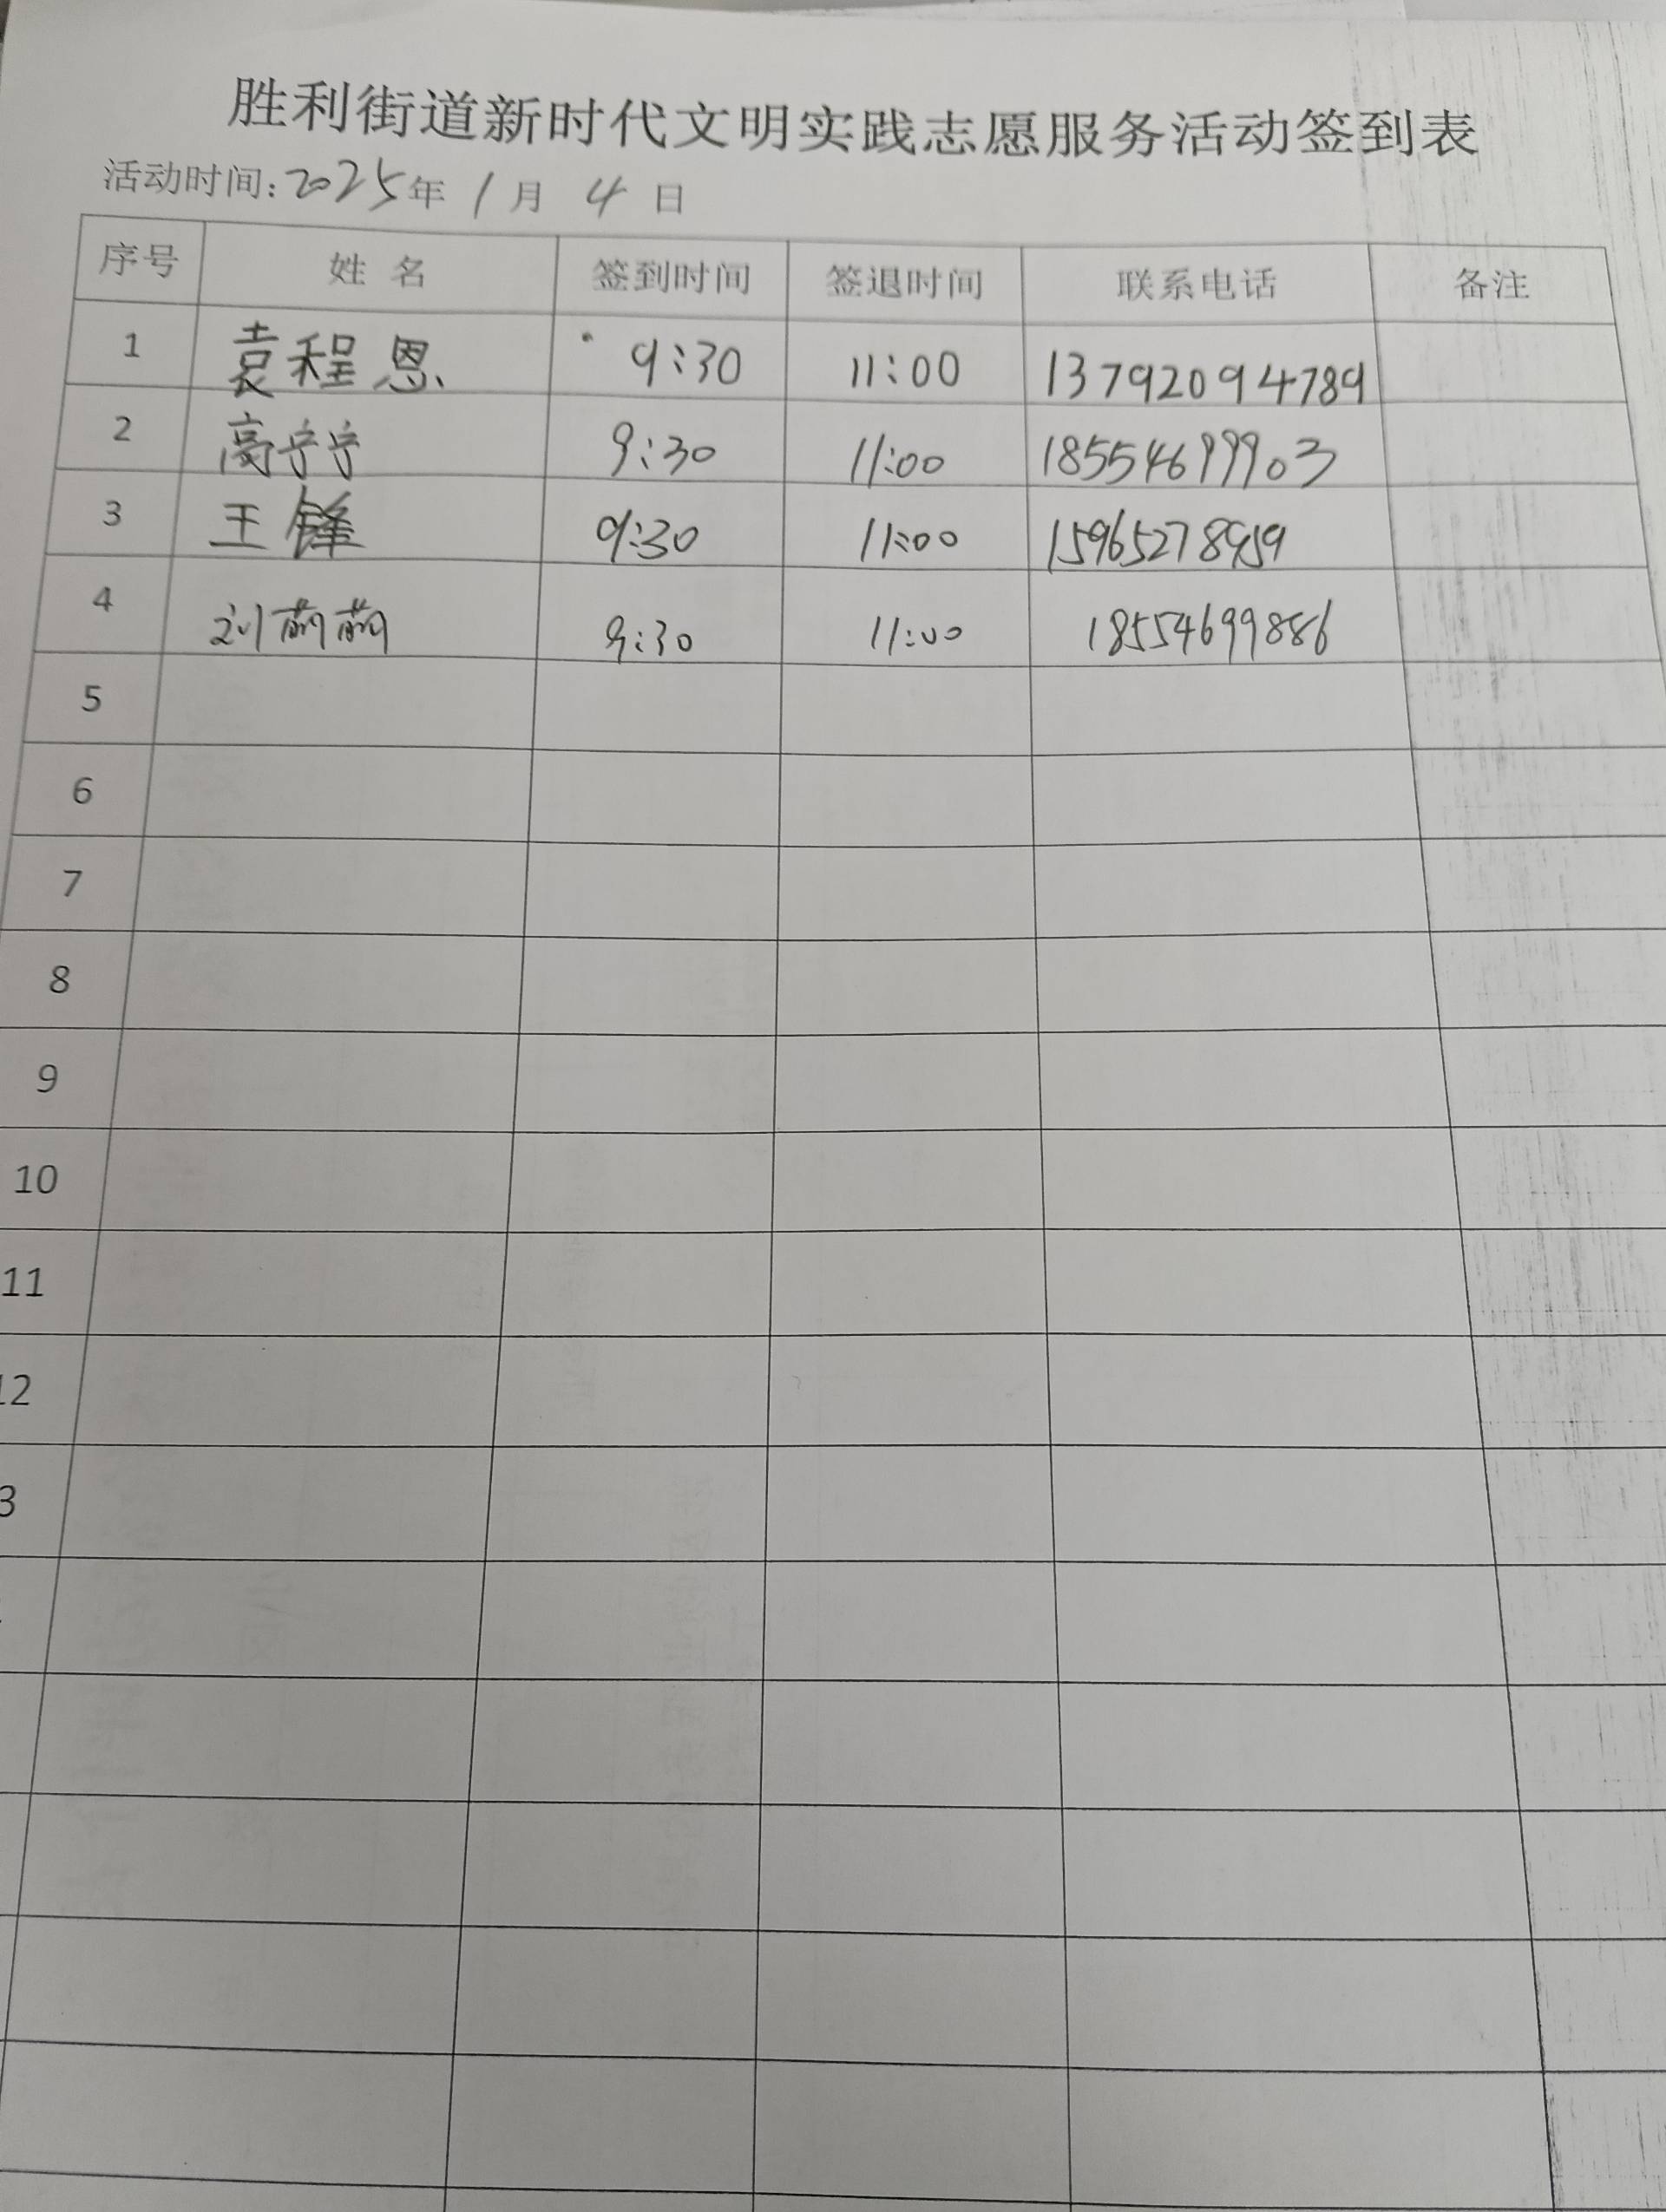 胜利街道新时代文明实践志愿服务活动签到表
活动时间:2025年 1 月 4 日
序号 姓 名 签到时间 签退时间 联系电话 备注
1 袁程恩 9:30 11:00 13792094789
2 高宁宁 9:30 11:00 18554699903
3 王锋 9:30 11:00 15965278959
4 刘萌萌 9:30 11:00 18554699886
5
6
7
8
9
10
11
12
3